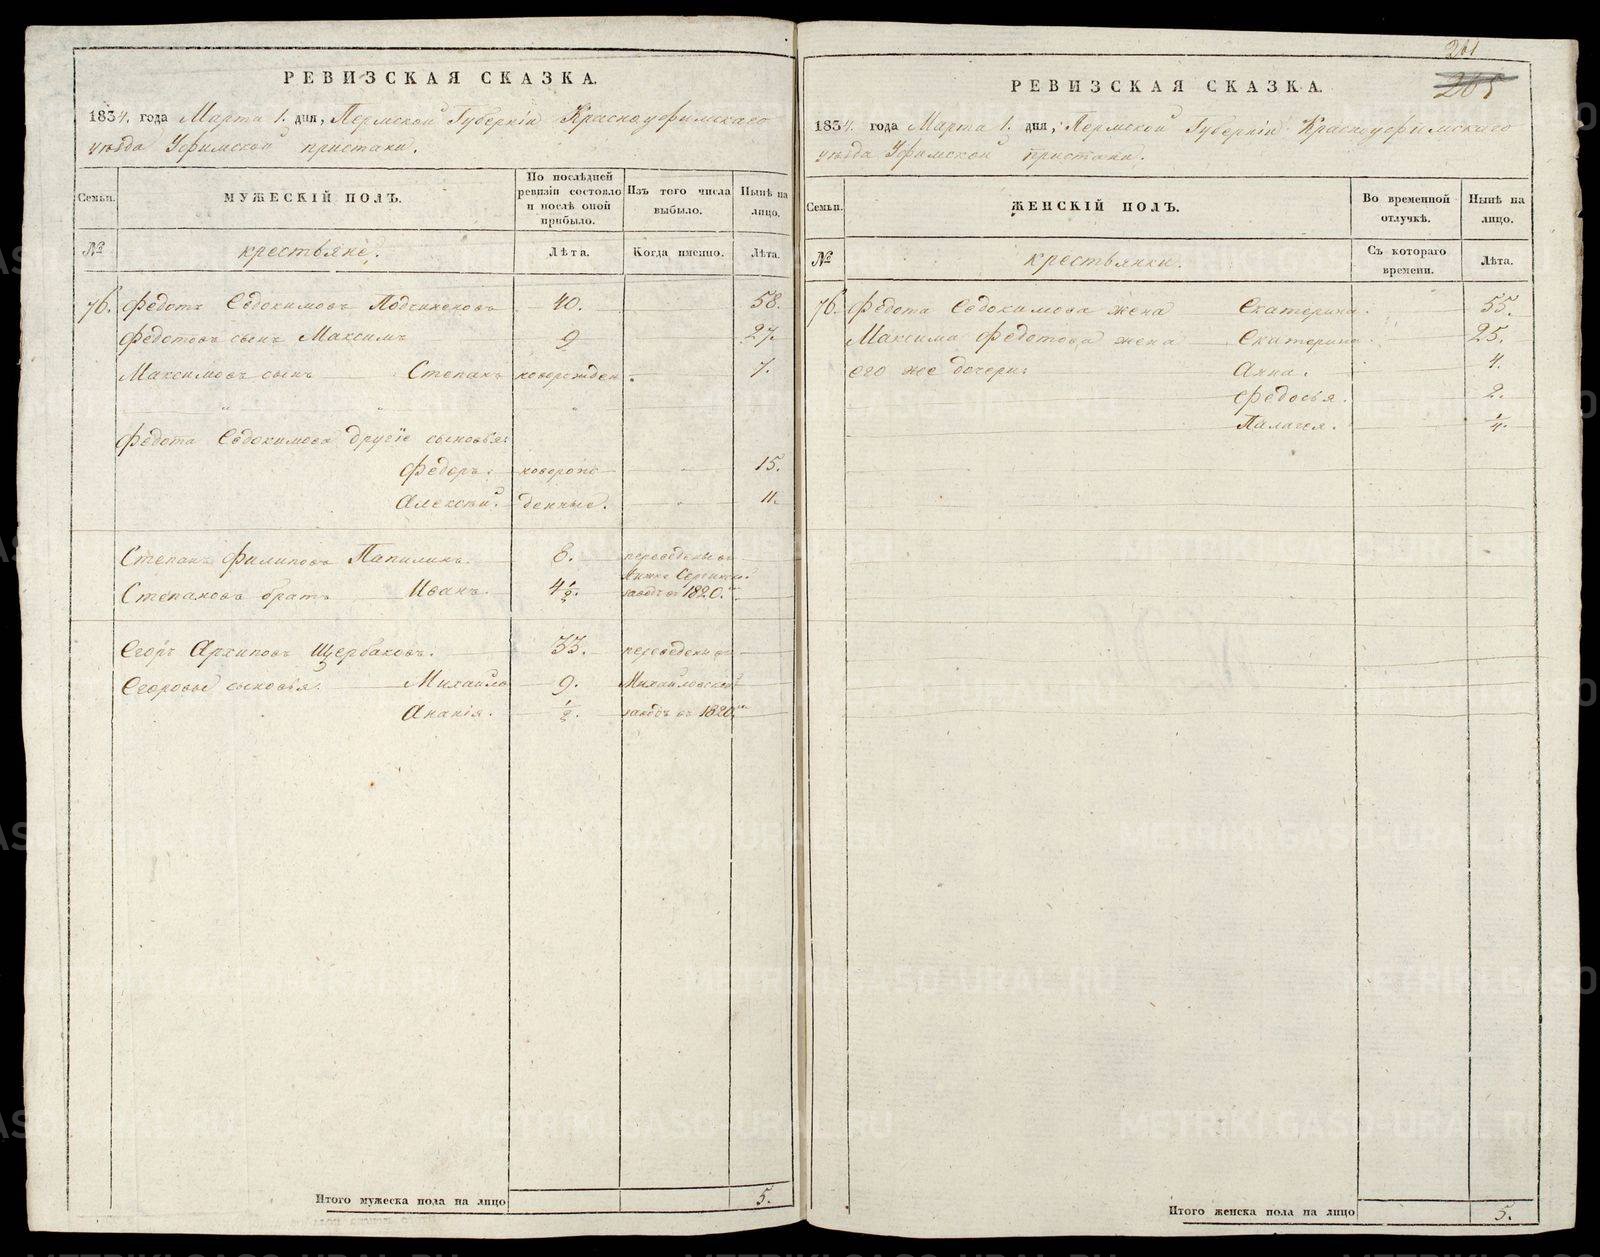 РЕВИЗСКАЯ СКАЗКА.
1834. года Марта 1. дня, Пермской Губерніи Красноуфимскаго
уѣзда Уфимской пристани.
Семьи.
МУЖЕСКІЙ ПОЛЪ.
По послѣдней ревизіи состояло и послѣ оной прибыло.
Изъ того числа выбыло.
Нынѣ на лицо.
№
крестьяне.
Лѣта.
Когда именно.
Лѣта.
76. Федотъ Евдокимовъ 40. 58.
Федотовъ сынъ Максимъ 9 27.
Максимовъ сынъ Степанъ новорожден. 7.
Федота Евдокимова другіе сыновья:
Федоръ. новорож 15.
Алексѣй. денные. 11.
Степанъ Филиповъ Папилинъ. 6. переведены въ
Нижне Сергинской
Степановъ братъ Иванъ. 4 1/2. заводъ въ 1820.мъ
Егоръ Архиповъ Щербаковъ. 33. переведены въ
Егоровы сыновья: Михайло 9. Михайловской
Ананія. 1/2. заводъ въ 1820мъ
Итого мужеска пола на лицо 5.
261
265
РЕВИЗСКАЯ СКАЗКА.
1834. года Марта 1. дня, Пермской Губерніи Красноуфимскаго
уѣзда Уфимской пристани.
Семьи.
ЖЕНСКІЙ ПОЛЪ.
Во временной отлучкѣ.
Нынѣ на лицо.
№
крестьянки.
Съ котораго времени.
Лѣта.
76. Федота Евдокимова жена Екатерина. 55.
Максима Федотова жена Екатерина 25.
его же дочери: Анна. 4.
Федосья. 2.
Палагея. 1/4.
Итого женска пола на лицо 5.
METRIKI.GASO-URAL.RU